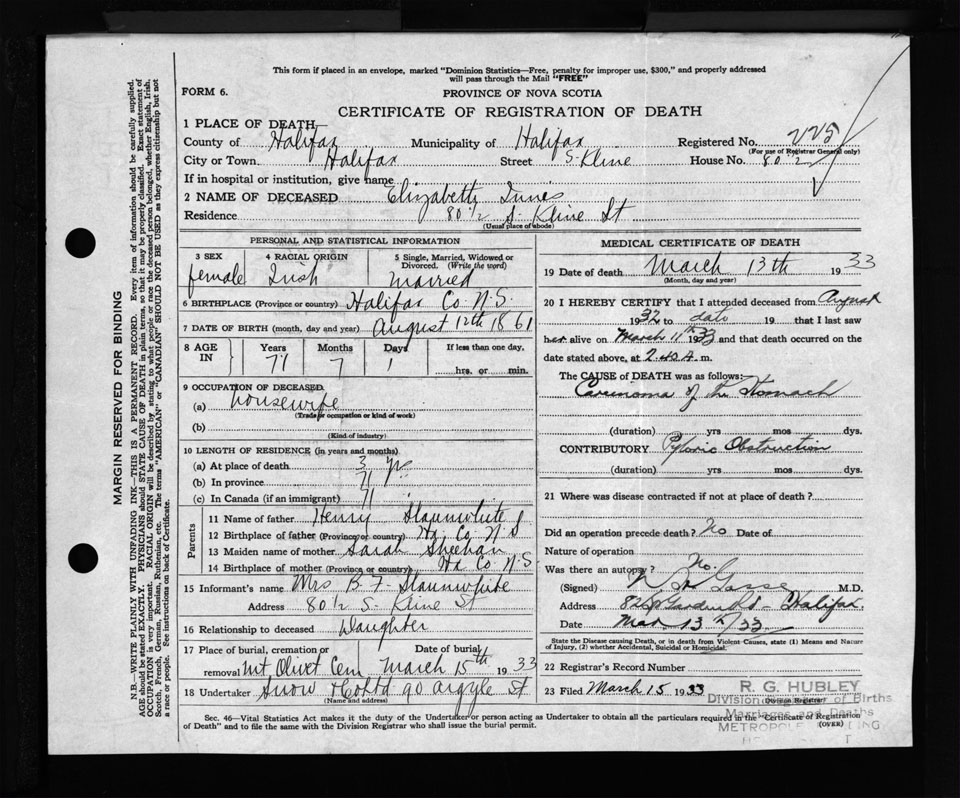 This form if placed in an envelope, marked "Dominion Statistics—Free, penalty for improper use, $300," and properly addressed
will pass through the Mail "FREE"
FORM 6.
PROVINCE OF NOVA SCOTIA
CERTIFICATE OF REGISTRATION OF DEATH
1 PLACE OF DEATH—
County of Halifax Municipality of Halifax Registered No. 225
(For use of Registrar General only)
City or Town. Halifax Street S. Kline House No. 80 1/2
If in hospital or institution, give name
2 NAME OF DECEASED Elizabeth
Residence 80 1/2 S. Kline St
(Usual place of abode)
PERSONAL AND STATISTICAL INFORMATION
3 SEX 4 RACIAL ORIGIN 5 Single, Married, Widowed or Divorced. (Write the word)
female Irish Married
6 BIRTHPLACE (Province or country) Halifax Co N.S.
7 DATE OF BIRTH (month, day and year) August 12th 1861
8 AGE IN Years Months Days If less than one day,
71 7 1 hrs. or min.
9 OCCUPATION OF DECEASED
(a) housewife
(Trade or occupation or kind of work)
(b)
(Kind of industry)
10 LENGTH OF RESIDENCE (in years and months)
(a) At place of death 3 yr
(b) In province 71
(c) In Canada (if an immigrant) 71
Parents
11 Name of father Henry Slaunwhite
12 Birthplace of father (Province or country) Hx. Co N S
13 Maiden name of mother Sarah Sheehan
14 Birthplace of mother (Province or country) Hx Co N.S
15 Informant's name Mrs B. F. Slaunwhite
Address 80 1/2 S. Kline St
16 Relationship to deceased Daughter
17 Place of burial, cremation or removal Mt Olivet Cem Date of burial March 15th 1933
18 Undertaker Snow & Co Ltd 90 Argyle St
(Name and address)
MEDICAL CERTIFICATE OF DEATH
19 Date of death March 13th 1933
(Month, day and year)
20 I HEREBY CERTIFY that I attended deceased from August
1932 to date 19 that I last saw
her alive on March 11th 1933 and that death occurred on the
date stated above, at 2.40 A. m.
The CAUSE of DEATH was as follows:
Carcinoma of the Stomach
(duration) yrs mos dys.
CONTRIBUTORY Pyloric Obstruction
(duration) yrs. mos dys.
21 Where was disease contracted if not at place of death?
Did an operation precede death? No Date of
Nature of operation
Was there an autopsy? No.
(Signed) M.D.
Address Halifax
Date Mar 13th/33
State the Disease causing Death, or in death from Violent Causes, state (1) Means and Nature
of Injury, (2) whether Accidental, Suicidal or Homicidal.
22 Registrar's Record Number
23 Filed March 15 1933
R. G. HUBLEY
Division Registrar of Births
Division Registrar
Marriages and Deaths
METROPOL
Sec. 46—Vital Statistics Act makes it the duty of the Undertaker or person acting as Undertaker to obtain all the particulars required in the "Certificate of Registration
of Death" and to file the same with the Division Registrar who shall issue the burial permit.
(OVER)
MARGIN RESERVED FOR BINDING
N.B.—WRITE PLAINLY WITH UNFADING INK—THIS IS A PERMANENT RECORD. Every item of information should be carefully supplied.
AGE should be stated EXACTLY. PHYSICIANS should STATE CAUSE OF DEATH in plain terms, so that it may be properly classified. Exact statement of
OCCUPATION is very important. RACIAL ORIGIN will be described by stating to what people or race the deceased person belonged, whether English, Irish,
Scotch, French, German, Russian, Ruthenian, etc. The terms "AMERICAN" or "CANADIAN" SHOULD NOT BE USED as they express citizenship but not
a race or people. See instructions on back of Certificate.